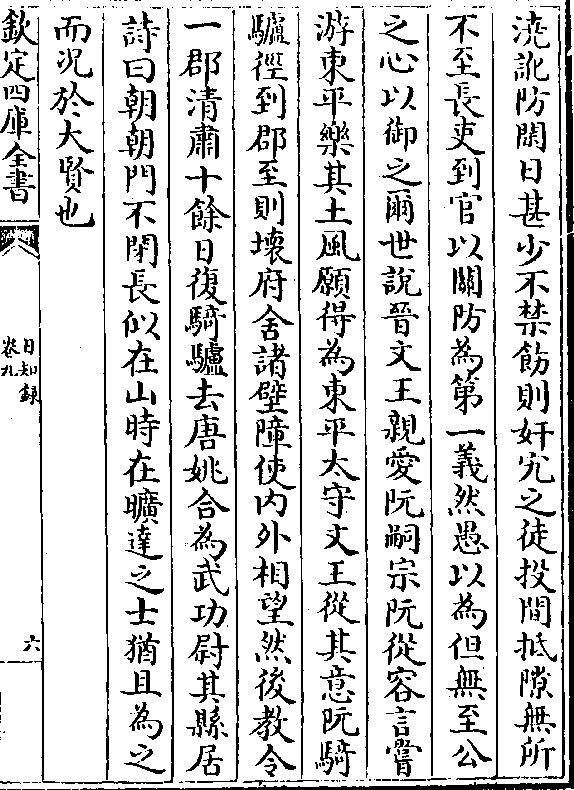 澆訛防閑日甚少不禁飭則奸宄之徒投間抵隙無所
不至長吏到官以關防為第一義然愚以為但無至公
之心以御之爾世說晉文王親愛阮嗣宗阮從容言嘗
游東平樂其土風願得為東平太守文王從其意阮騎
驢徑到郡至則壞府舍諸壁障使内外相望然後教令
一郡清肅十餘日復騎驢去唐姚合為武功尉其縣居
詩曰朝朝門不閉長似在山時在曠達之士猶且為之
而況於大賢也
欽定四庫全書
日知録
卷九
六